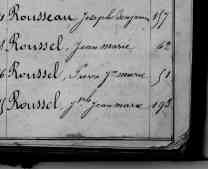 Rousseau Joseph Benjamin 157
Roussel, Jean marie 62
Roussel, Pierre Jn marie 51
Roussel, Jph Jean marie 198